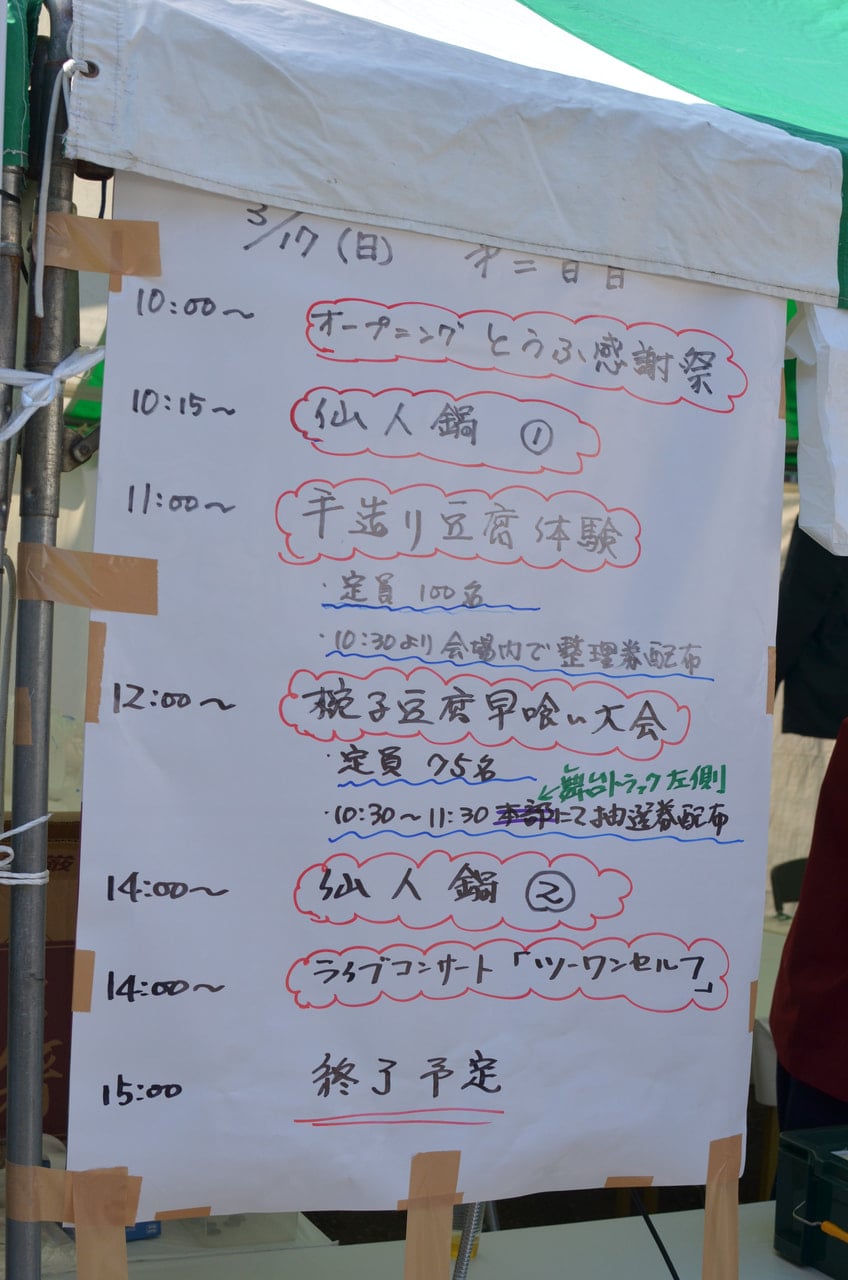 3/17(日) 才二日目
10:00〜 オープニング とうふ感謝祭
10:15〜 仙人鍋 ①
11:00〜 手造り豆腐体験
・定員 100名
・10:30より会場内で整理券配布
12:00〜 椀子豆腐早喰い大会
・定員 75名
←舞台トラック左側
・10:30〜11:30 本部にて抽選券配布
14:00〜 仙人鍋 ②
14:00〜 ライブコンサート「ツーワンセルフ」
15:00 終了予定